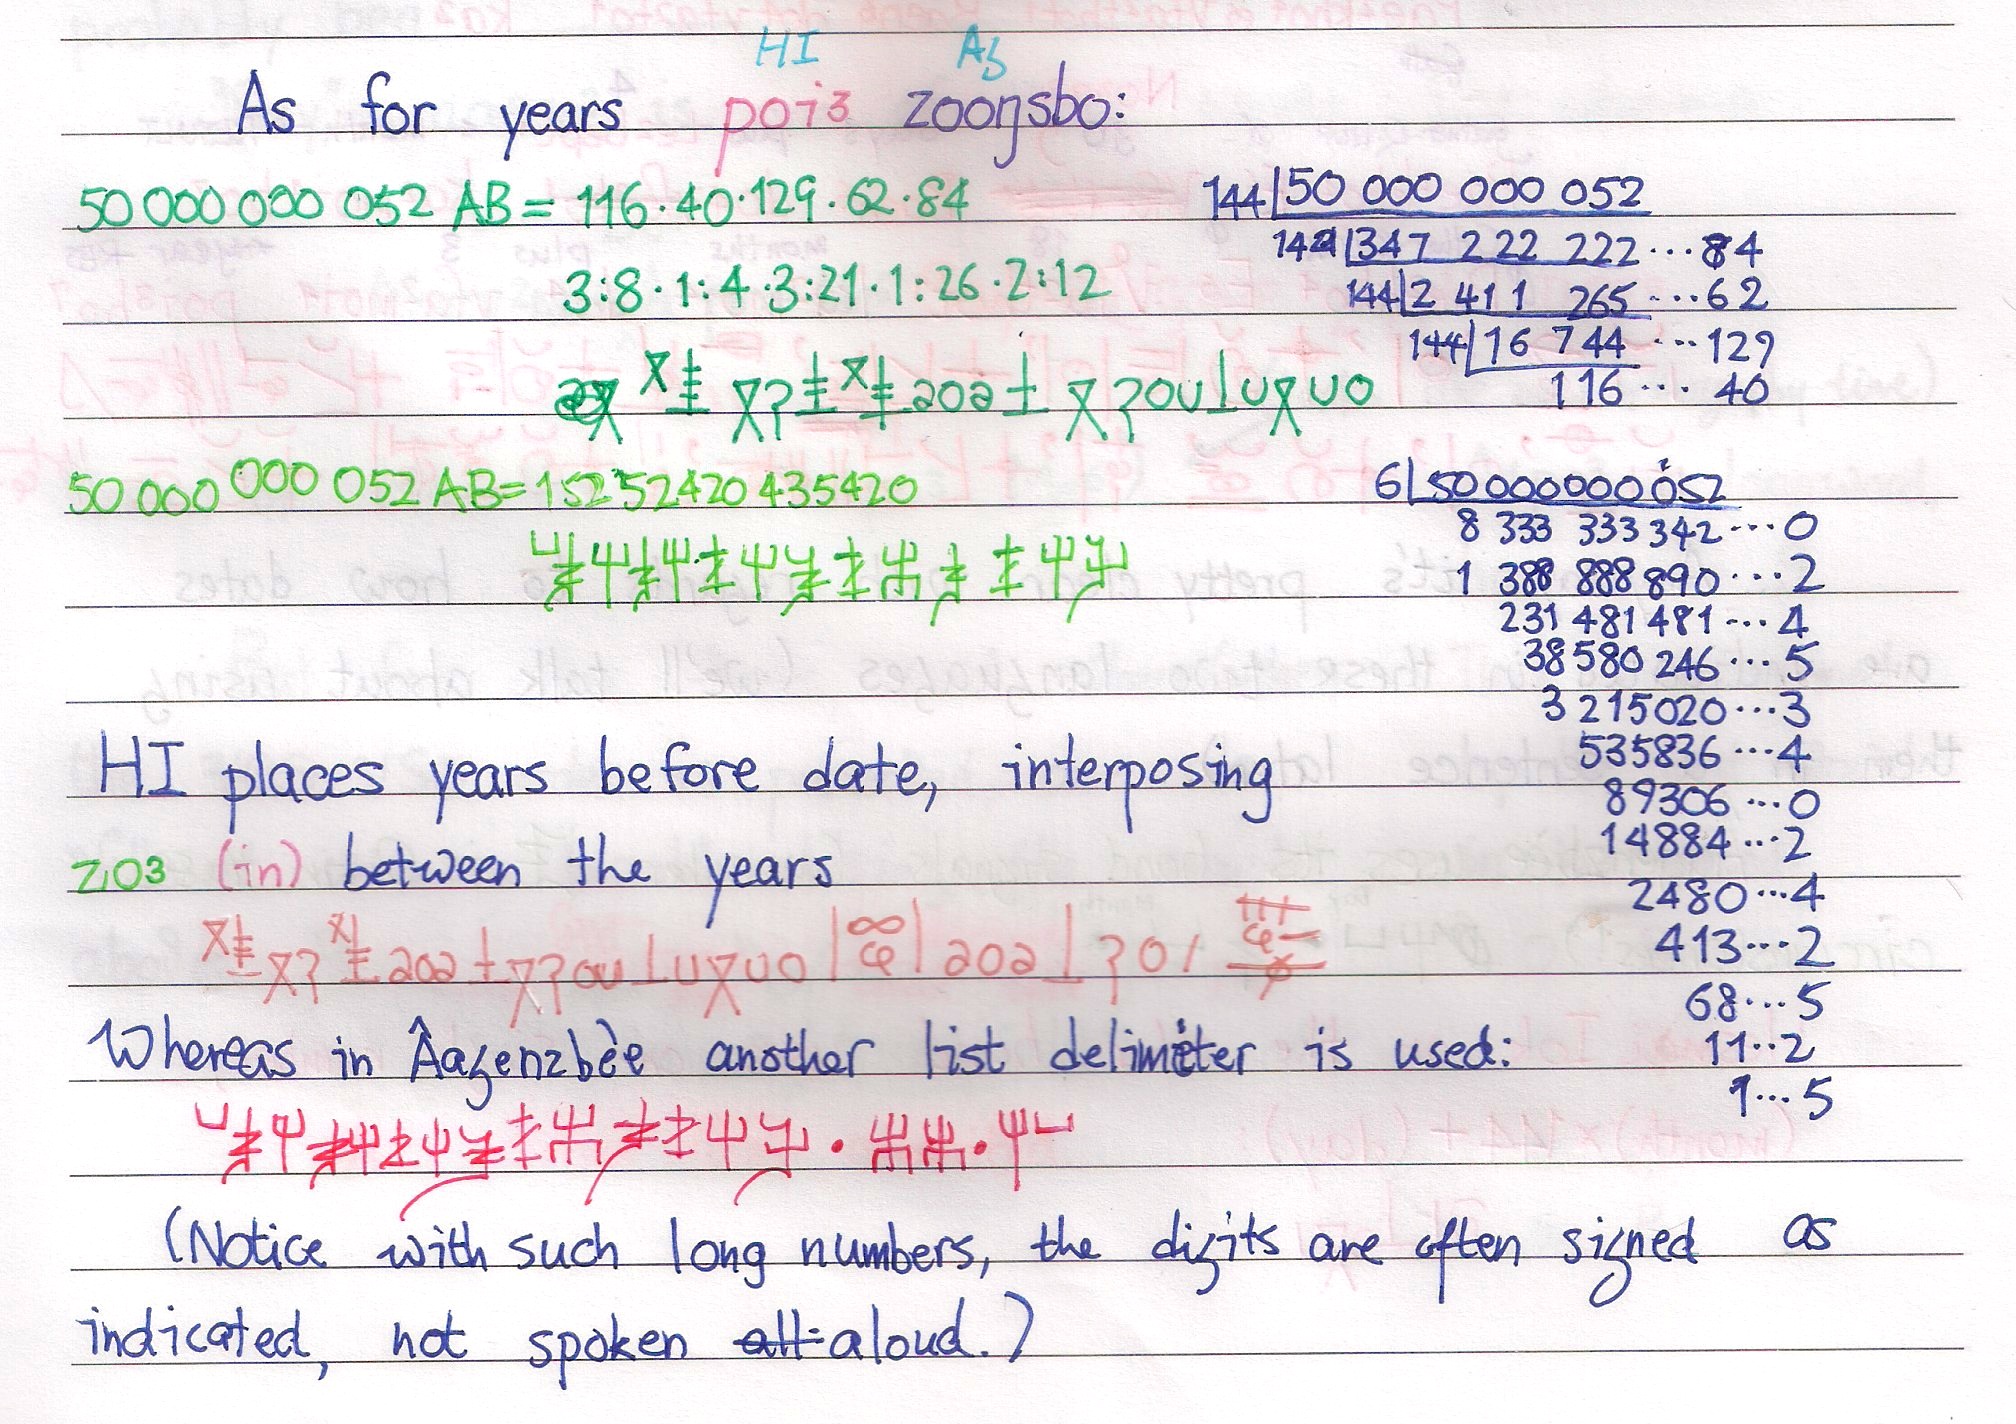 HI Aʒ
As for years poi3 zooŋsbo:
50 000 000 052 AB = 116·40·129·62·84
3:8·1:4·3:21·1:26·2:12
50 000 000 052 AB = 15252420435420
144 50 000 000 052
144 347 222 222...84
144 2 411 265...62
144 16 744...129
116... 40
6 50000000052
8 333 333 342...0
1 388 888 890...2
231 481 481...4
38 580 246...5
3 215020...3
535836...4
89306...0
14884...2
2480...4
413...2
68...5
11..2
1...5
HI places years before date, interposing
zɩo3 (in) between the years
Whereas in Âaʒenzbèe another list delimiter is used:
(Notice with such long numbers, the digits are often signed as
indicated, not spoken aloud.)